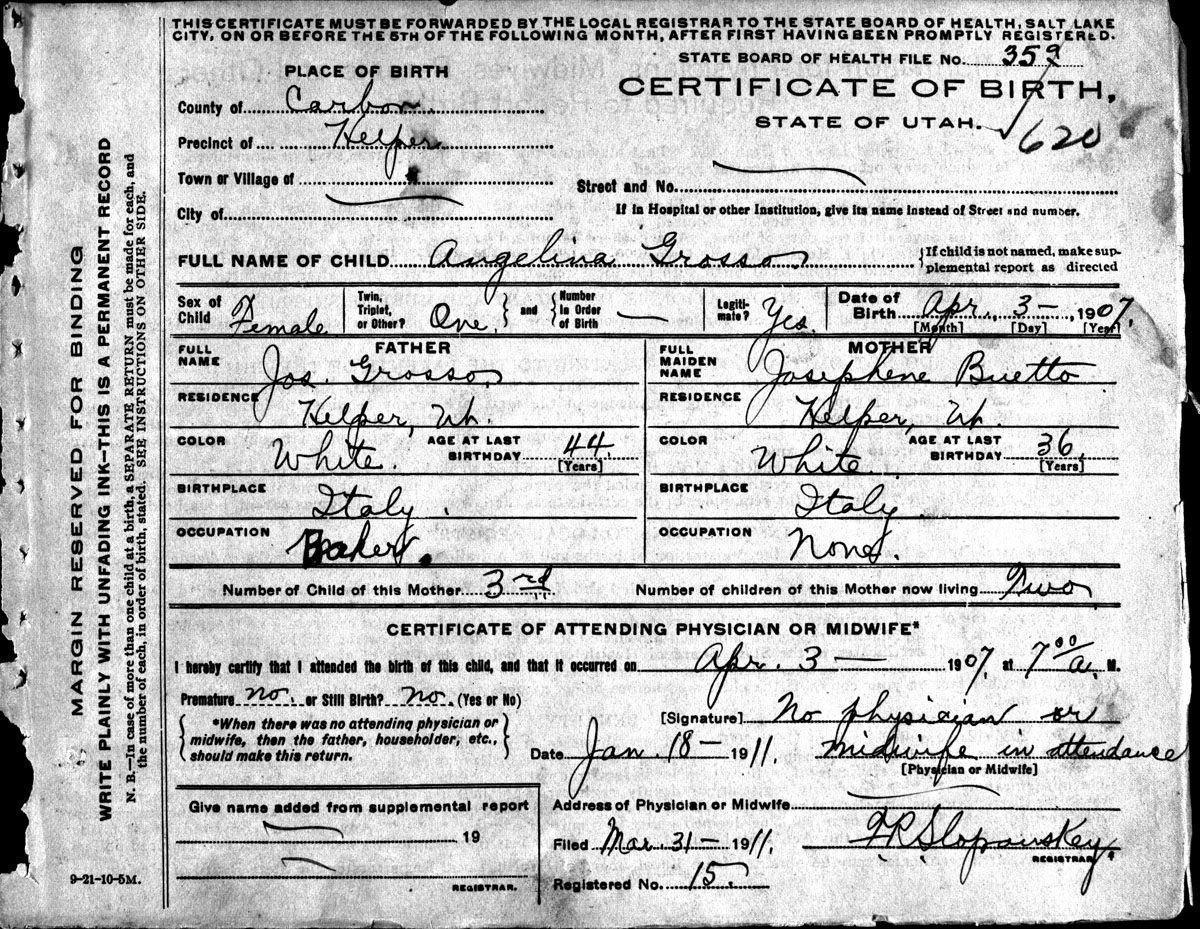 THIS CERTIFICATE MUST BE FORWARDED BY THE LOCAL REGISTRAR TO THE STATE BOARD OF HEALTH, SALT LAKE
CITY, ON OR BEFORE THE 5TH OF THE FOLLOWING MONTH, AFTER FIRST HAVING BEEN PROMPTLY REGISTERED.
STATE BOARD OF HEALTH FILE NO. 359
PLACE OF BIRTH
CERTIFICATE OF BIRTH,
County of Carbon
STATE OF UTAH.
620
Precinct of Helper
Town or Village of
Street and No.
City of
If in Hospital or other Institution, give its name instead of Street and number.
FULL NAME OF CHILD Angelina Grosso {If child is not named, make sup-
plemental report as directed
Sex of Child Female Twin, Triplet, or Other? One } and { Number In Order of Birth — Legiti-mate? Yes. Date of Birth Apr. 3 — , 1907.
[Month] [Day] [Year]
FATHER
FULL NAME Jos. Grosso
RESIDENCE Helper, Ut.
COLOR White. AGE AT LAST BIRTHDAY 44. [Years]
BIRTHPLACE Italy.
OCCUPATION Baker.
MOTHER
FULL MAIDEN NAME Josephene Buetto
RESIDENCE Helper, Ut.
COLOR White AGE AT LAST BIRTHDAY 36. [Years]
BIRTHPLACE Italy
OCCUPATION None.
Number of Child of this Mother 3rd Number of children of this Mother now living Two
CERTIFICATE OF ATTENDING PHYSICIAN OR MIDWIFE*
I hereby certify that I attended the birth of this child, and that it occurred on Apr. 3 — 1907. at 7 00 a. M.
Premature no. or Still Birth? no. (Yes or No)
{ *When there was no attending physician or
midwife, then the father, householder, etc.,
should make this return. }
[Signature] No physician or
Date Jan. 18 — 1911. midwife in attendance
[Physician or Midwife]
Give name added from supplemental report
19
REGISTRAR.
Address of Physician or Midwife
Filed Mar. 31 — 1911.
REGISTRAR
Registered No. 15.
MARGIN RESERVED FOR BINDING
WRITE PLAINLY WITH UNFADING INK—THIS IS A PERMANENT RECORD
N. B.—In case of more than one child at a birth, a SEPARATE RETURN must be made for each, and
the number of each, in order of birth, stated. SEE INSTRUCTIONS ON OTHER SIDE.
9-21-10-5M.